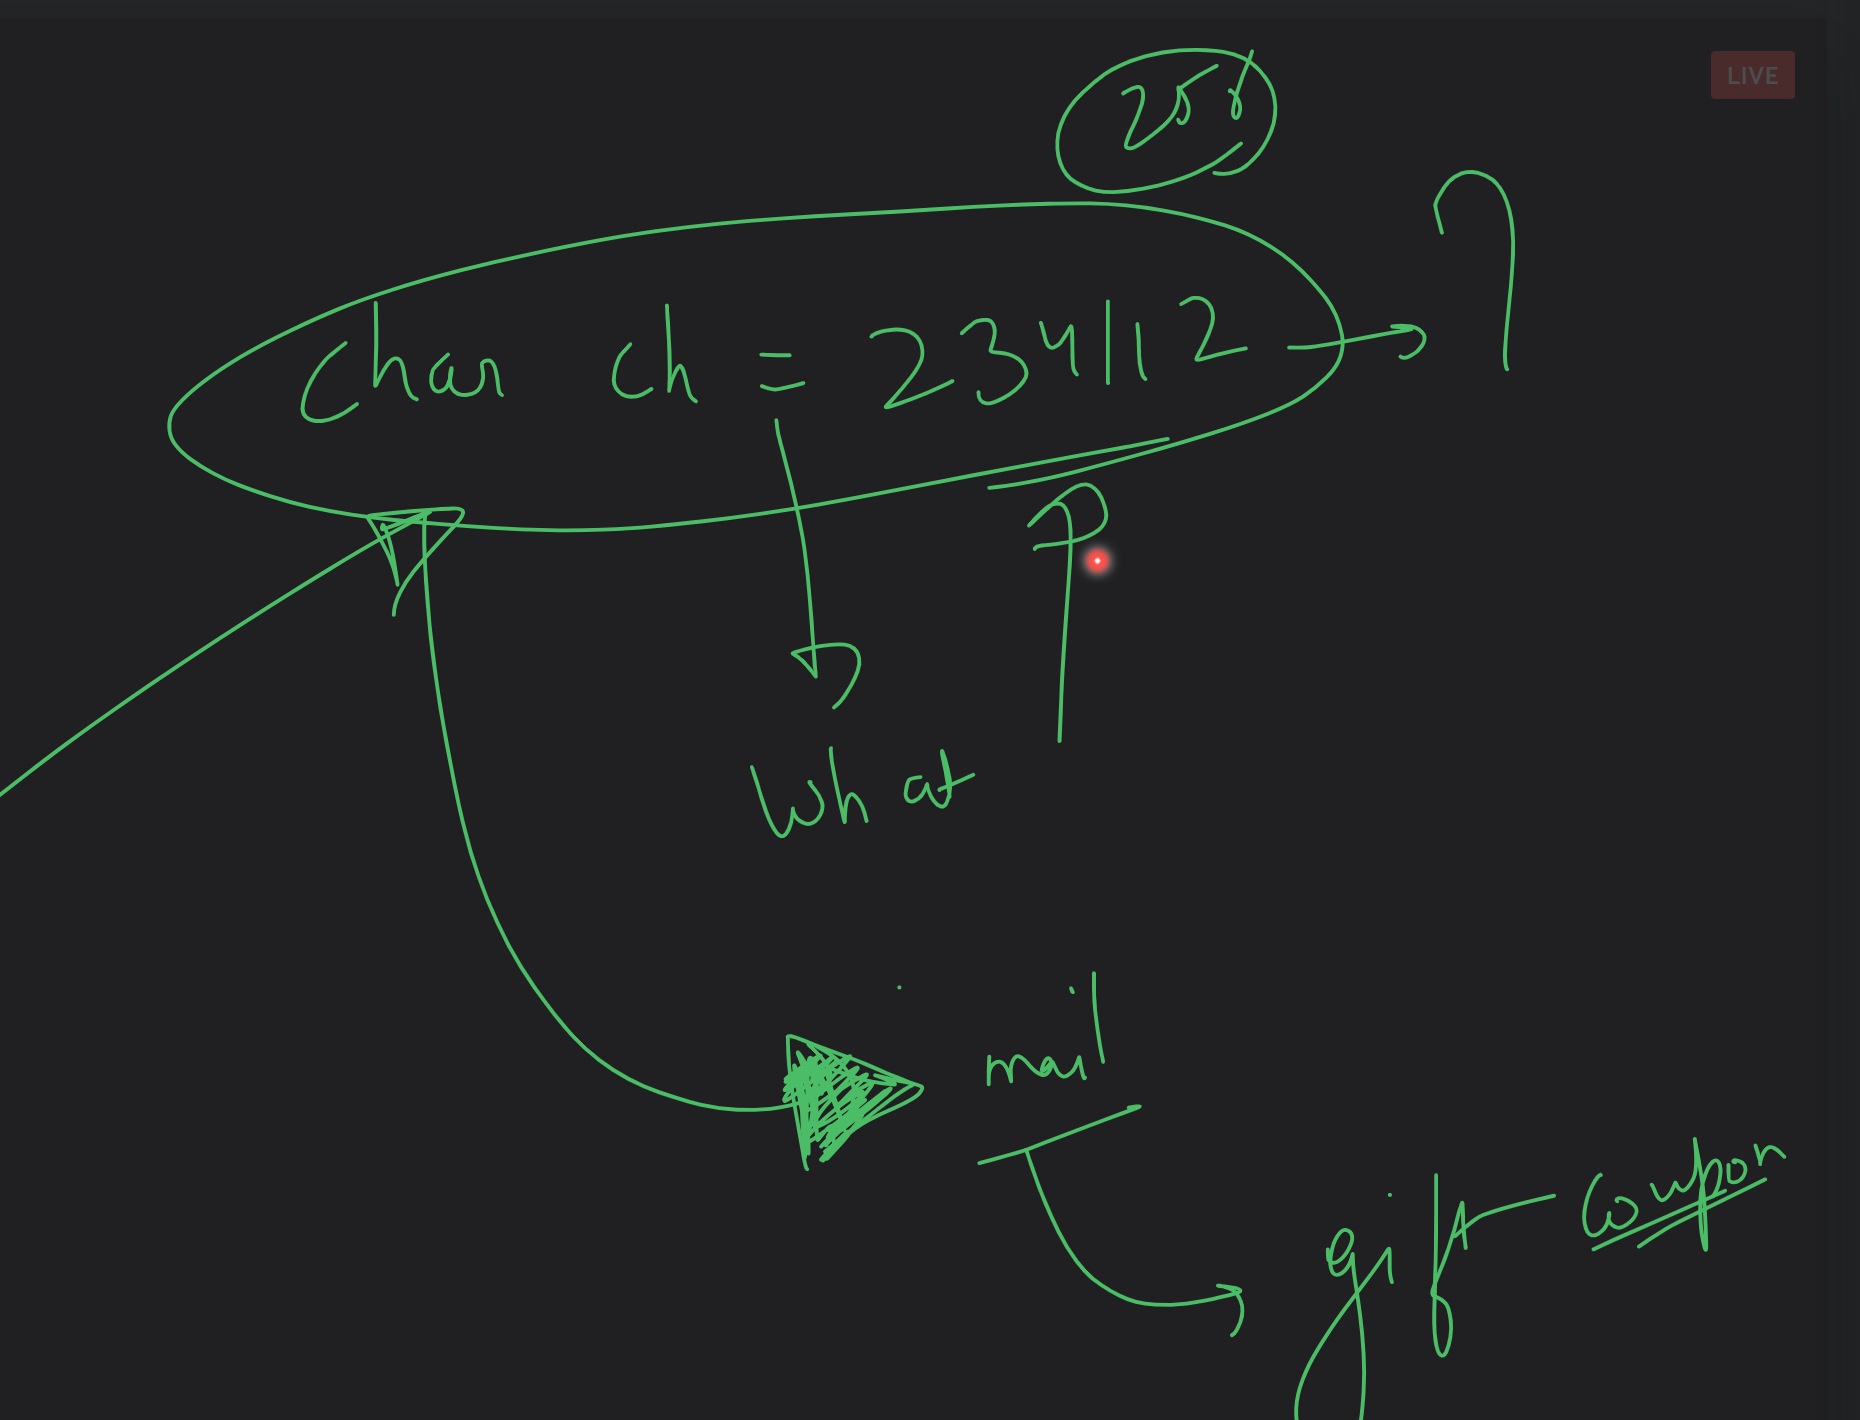 LIVE
256
Char ch = 234112
What
mail
gift coupon